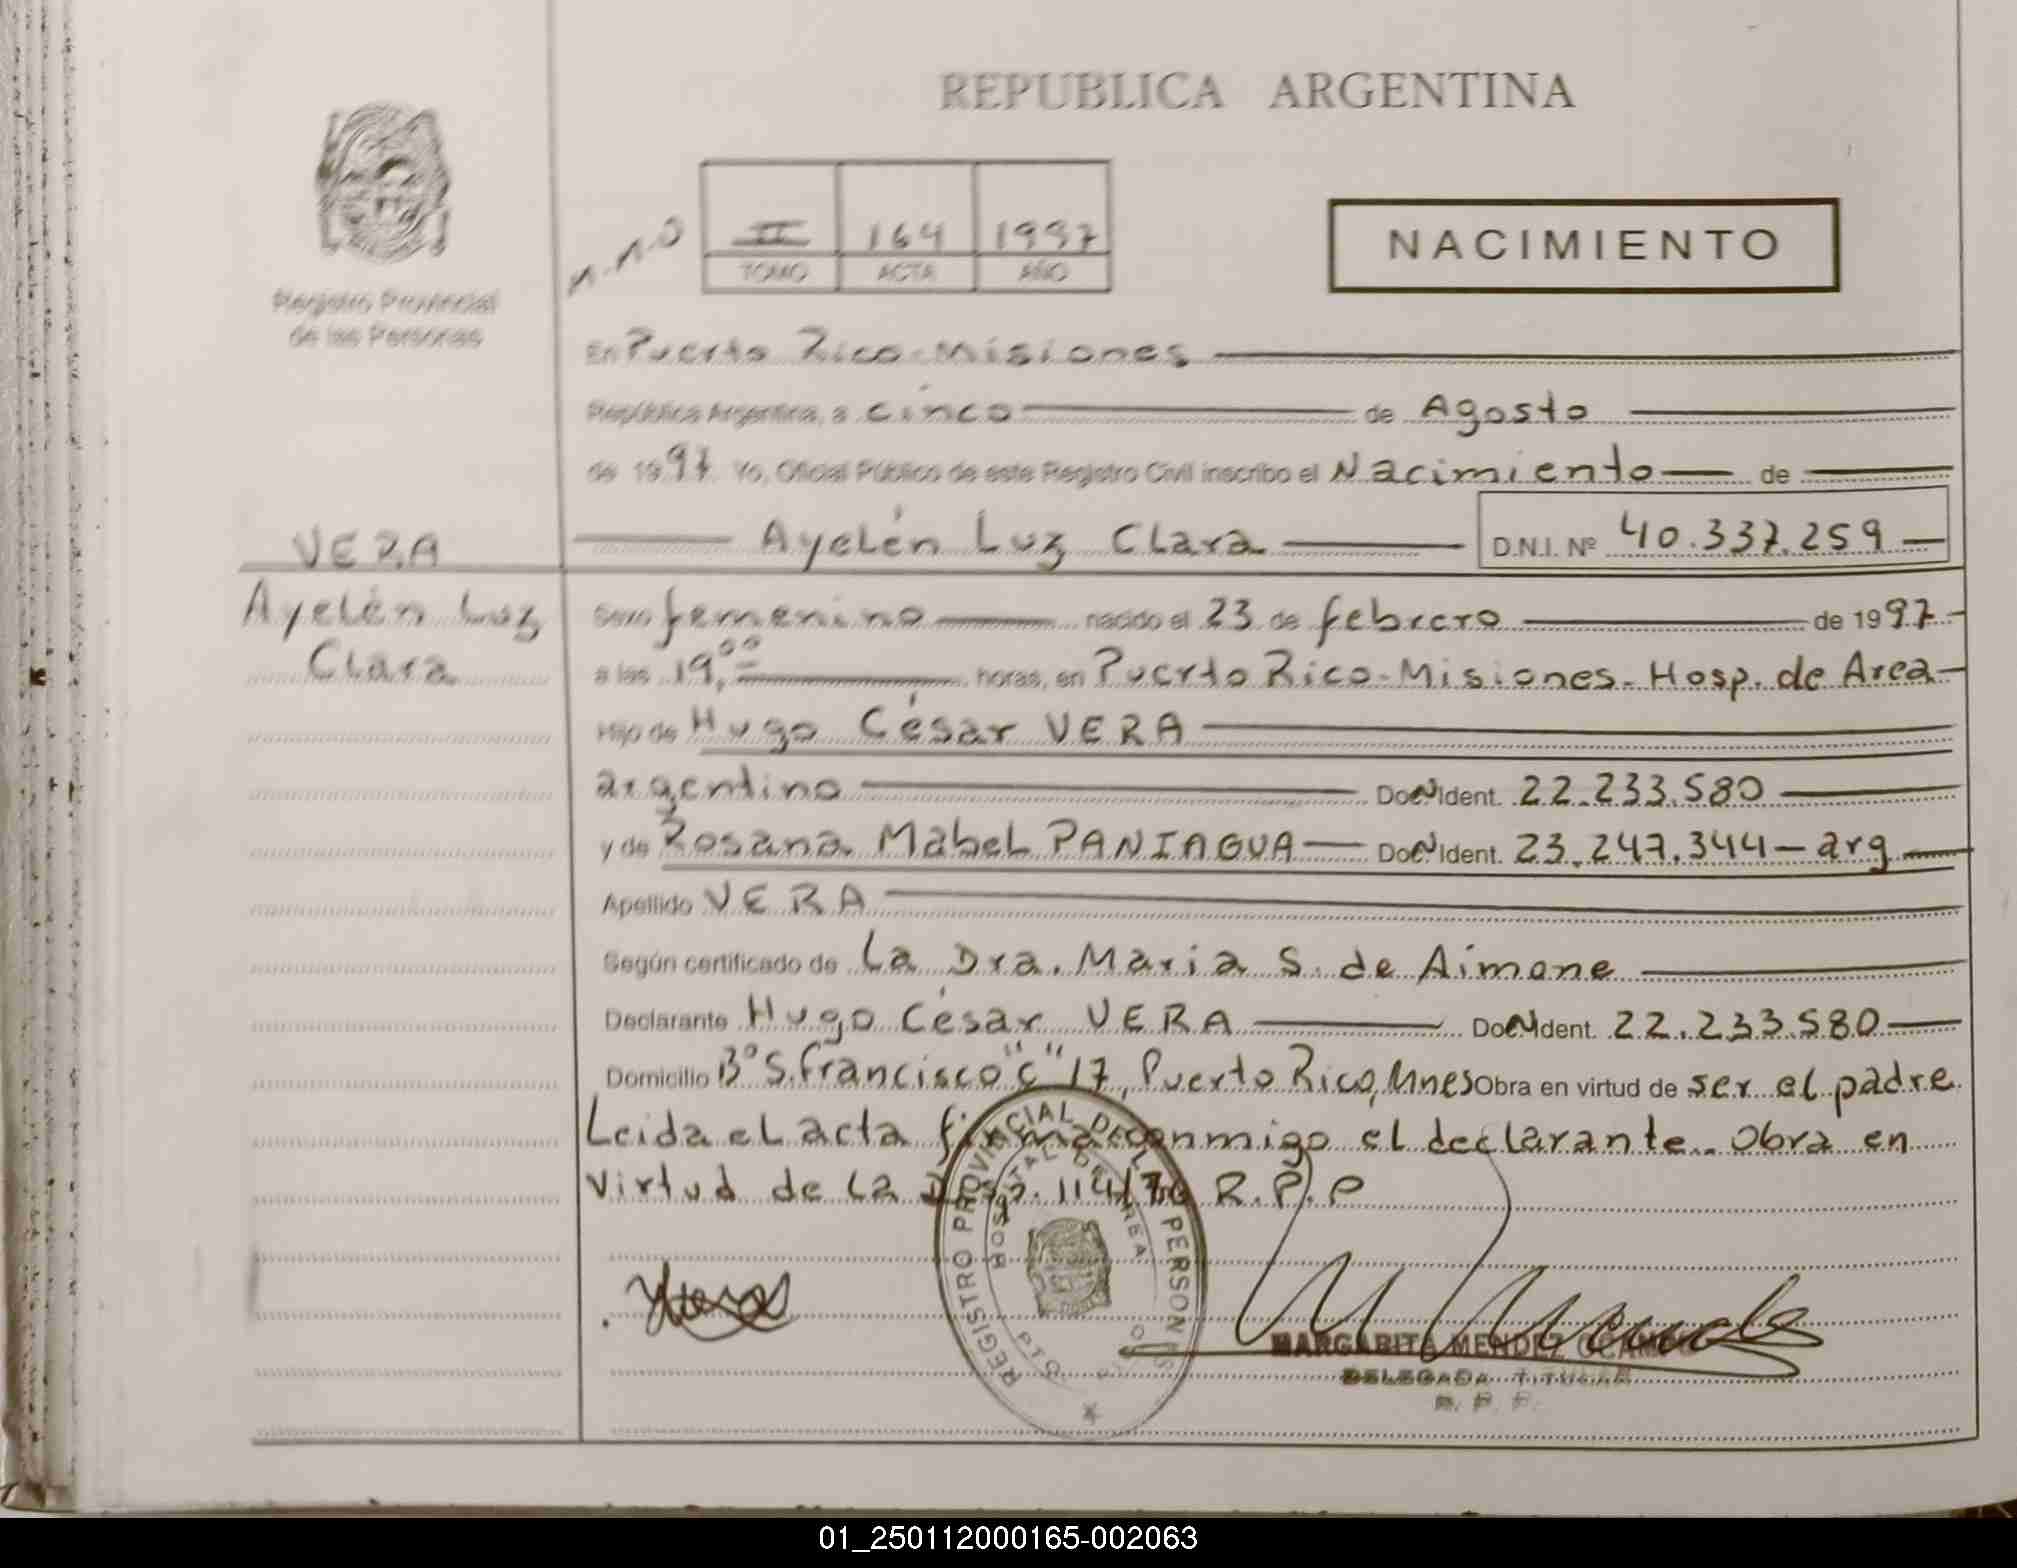 REPUBLICA ARGENTINA
Registro Provincial
de las Personas
n.n.o
II 164 1997
TOMO ACTA AÑO
NACIMIENTO
En Puerto Rico-Misiones
República Argentina, a cinco de Agosto
de 1997. Yo, Oficial Público de este Registro Civil inscribo el Nacimiento de
Ayelén Luz Clara D.N.I. Nº 40.337.259
VERA
Ayelén Luz
Clara
Sexo femenino nacido el 23 de febrero de 1997
a las 19,00 horas, en Puerto Rico-Misiones. Hosp. de Area
Hijo de Hugo César VERA
argentino Doc Ident. 22.233.580
y de Rosana Mabel PANIAGUA Doc Ident. 23.247.344 - arg
Apellido VERA
Según certificado de La Dra. Maria S. de Aimone
Declarante Hugo César VERA Doc Ident. 22.233.580
Domicilio Bº S. Francisco "C" 17, Puerto Rico, Mnes Obra en virtud de ser el padre
Leida el acta firma conmigo el declarante. Obra en
virtud de la Disp. 114/76 R.P.P
REGISTRO PROVINCIAL DE L PERSON
HOSPITAL DE AREA
PTO.
MARGARITA MENDEZ OCAMPO
DELEGADA TITULAR
R. P. P.
01_250112000165-002063